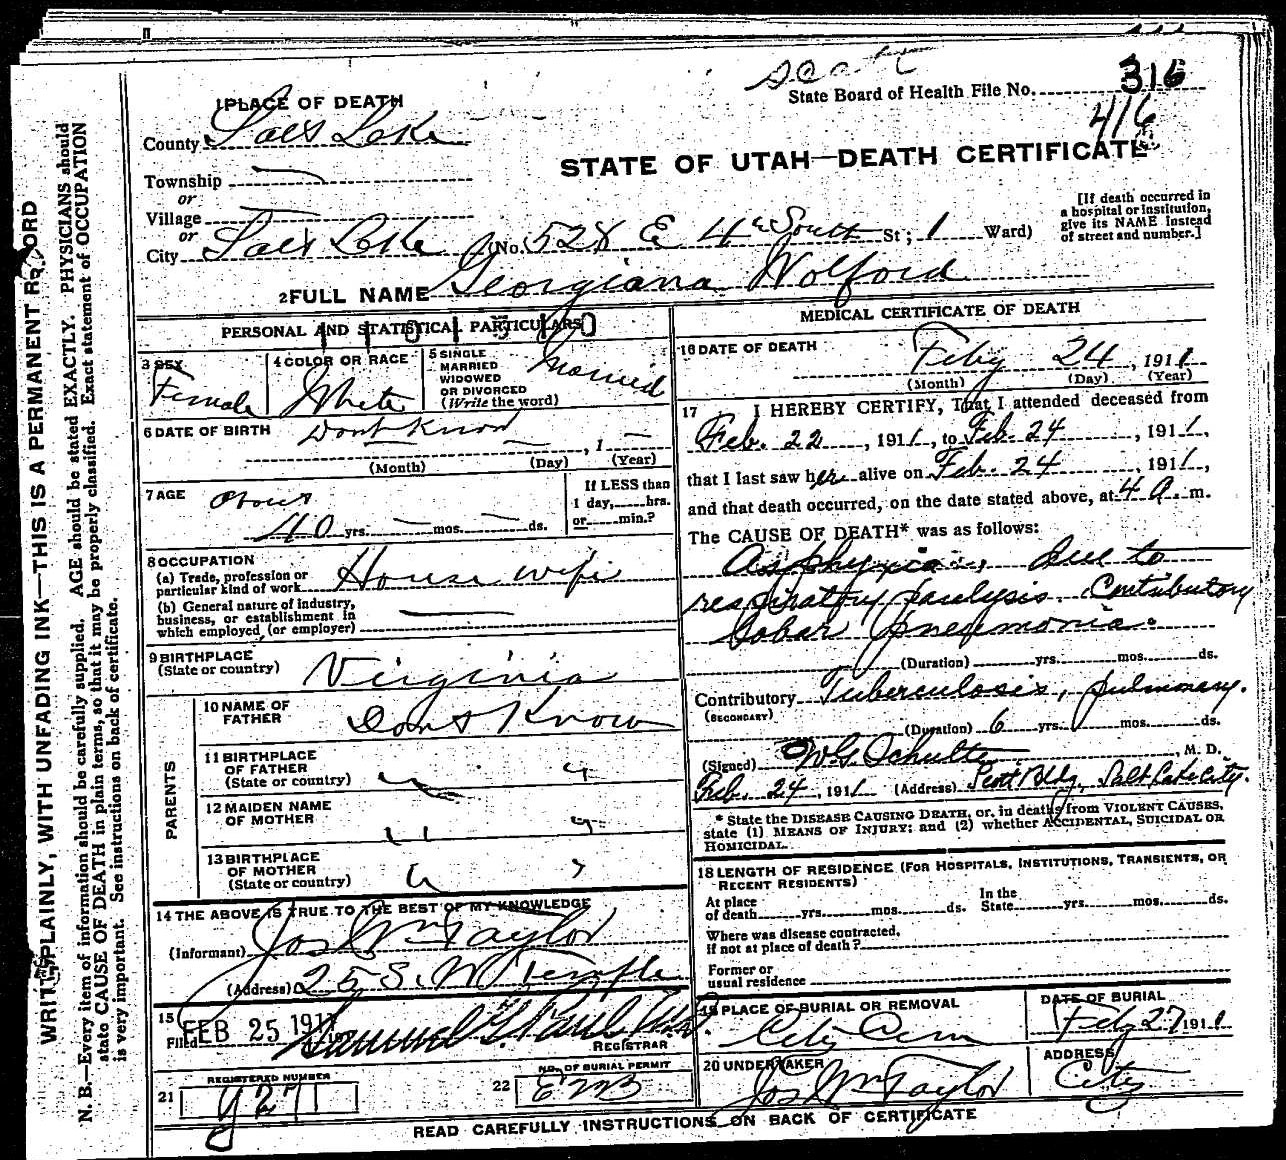 State Board of Health File No. 316
416
1 PLACE OF DEATH
County Salt Lake
STATE OF UTAH—DEATH CERTIFICATE
Township —
or
Village —
or
City Salt Lake (No. 528 E 4th South St; 1 Ward)
[If death occurred in a hospital or institution, give its NAME instead of street and number.]
2 FULL NAME Georgiana Wolford
PERSONAL AND STATISTICAL PARTICULARS
3 SEX Female
4 COLOR OR RACE White
5 SINGLE MARRIED WIDOWED OR DIVORCED (Write the word) Married
6 DATE OF BIRTH Dont Know — — , 1 —
(Month) (Day) (Year)
7 AGE About
40 yrs. — mos. — ds.
If LESS than 1 day, hrs. or min.?
8 OCCUPATION
(a) Trade, profession or particular kind of work House wife
(b) General nature of industry, business, or establishment in which employed (or employer) —
9 BIRTHPLACE (State or country) Virginia
PARENTS
10 NAME OF FATHER Dont Know
11 BIRTHPLACE OF FATHER (State or country) " "
12 MAIDEN NAME OF MOTHER " "
13 BIRTHPLACE OF MOTHER (State or country) " "
14 THE ABOVE IS TRUE TO THE BEST OF MY KNOWLEDGE
(Informant) Jos Wm Taylor
(Address) 25 S. W Temple
15 Filed FEB 25 1911 Samuel G. Paul
REGISTRAR
21 REGISTERED NUMBER
22 NO. OF BURIAL PERMIT
MEDICAL CERTIFICATE OF DEATH
16 DATE OF DEATH Feby 24, 1911
(Month) (Day) (Year)
17 I HEREBY CERTIFY, That I attended deceased from
Feb. 22, 1911, to Feb. 24, 1911,
that I last saw her alive on Feb. 24, 1911,
and that death occurred, on the date stated above, at 4 a. m.
The CAUSE OF DEATH* was as follows:
Asphyxia, due to
respiratory paralysis. Contributory
Lobar pneumonia.
(Duration) yrs. mos. ds.
Contributory (SECONDARY) Tuberculosis, pulmonary.
(Duration) 6 yrs. mos. ds.
(Signed) W.G. Schulte, M. D.
Feb. 24, 1911 (Address) Scott Bldg, Salt Lake City.
* State the DISEASE CAUSING DEATH, or, in deaths from VIOLENT CAUSES,
state (1) MEANS OF INJURY; and (2) whether ACCIDENTAL, SUICIDAL OR
HOMICIDAL.
18 LENGTH OF RESIDENCE (FOR HOSPITALS, INSTITUTIONS, TRANSIENTS, OR
RECENT RESIDENTS)
At place of death yrs. mos. ds. In the State yrs. mos. ds.
Where was disease contracted, if not at place of death?
Former or usual residence
19 PLACE OF BURIAL OR REMOVAL City Cem
DATE OF BURIAL Feby 27 1911
20 UNDERTAKER Jos Wm Taylor
ADDRESS City
READ CAREFULLY INSTRUCTIONS ON BACK OF CERTIFICATE
WRITE PLAINLY, WITH UNFADING INK—THIS IS A PERMANENT RECORD
N. B.—Every item of information should be carefully supplied. AGE should be stated EXACTLY. PHYSICIANS should
state CAUSE OF DEATH in plain terms, so that it may be properly classified. Exact statement of OCCUPATION
is very important. See instructions on back of certificate.